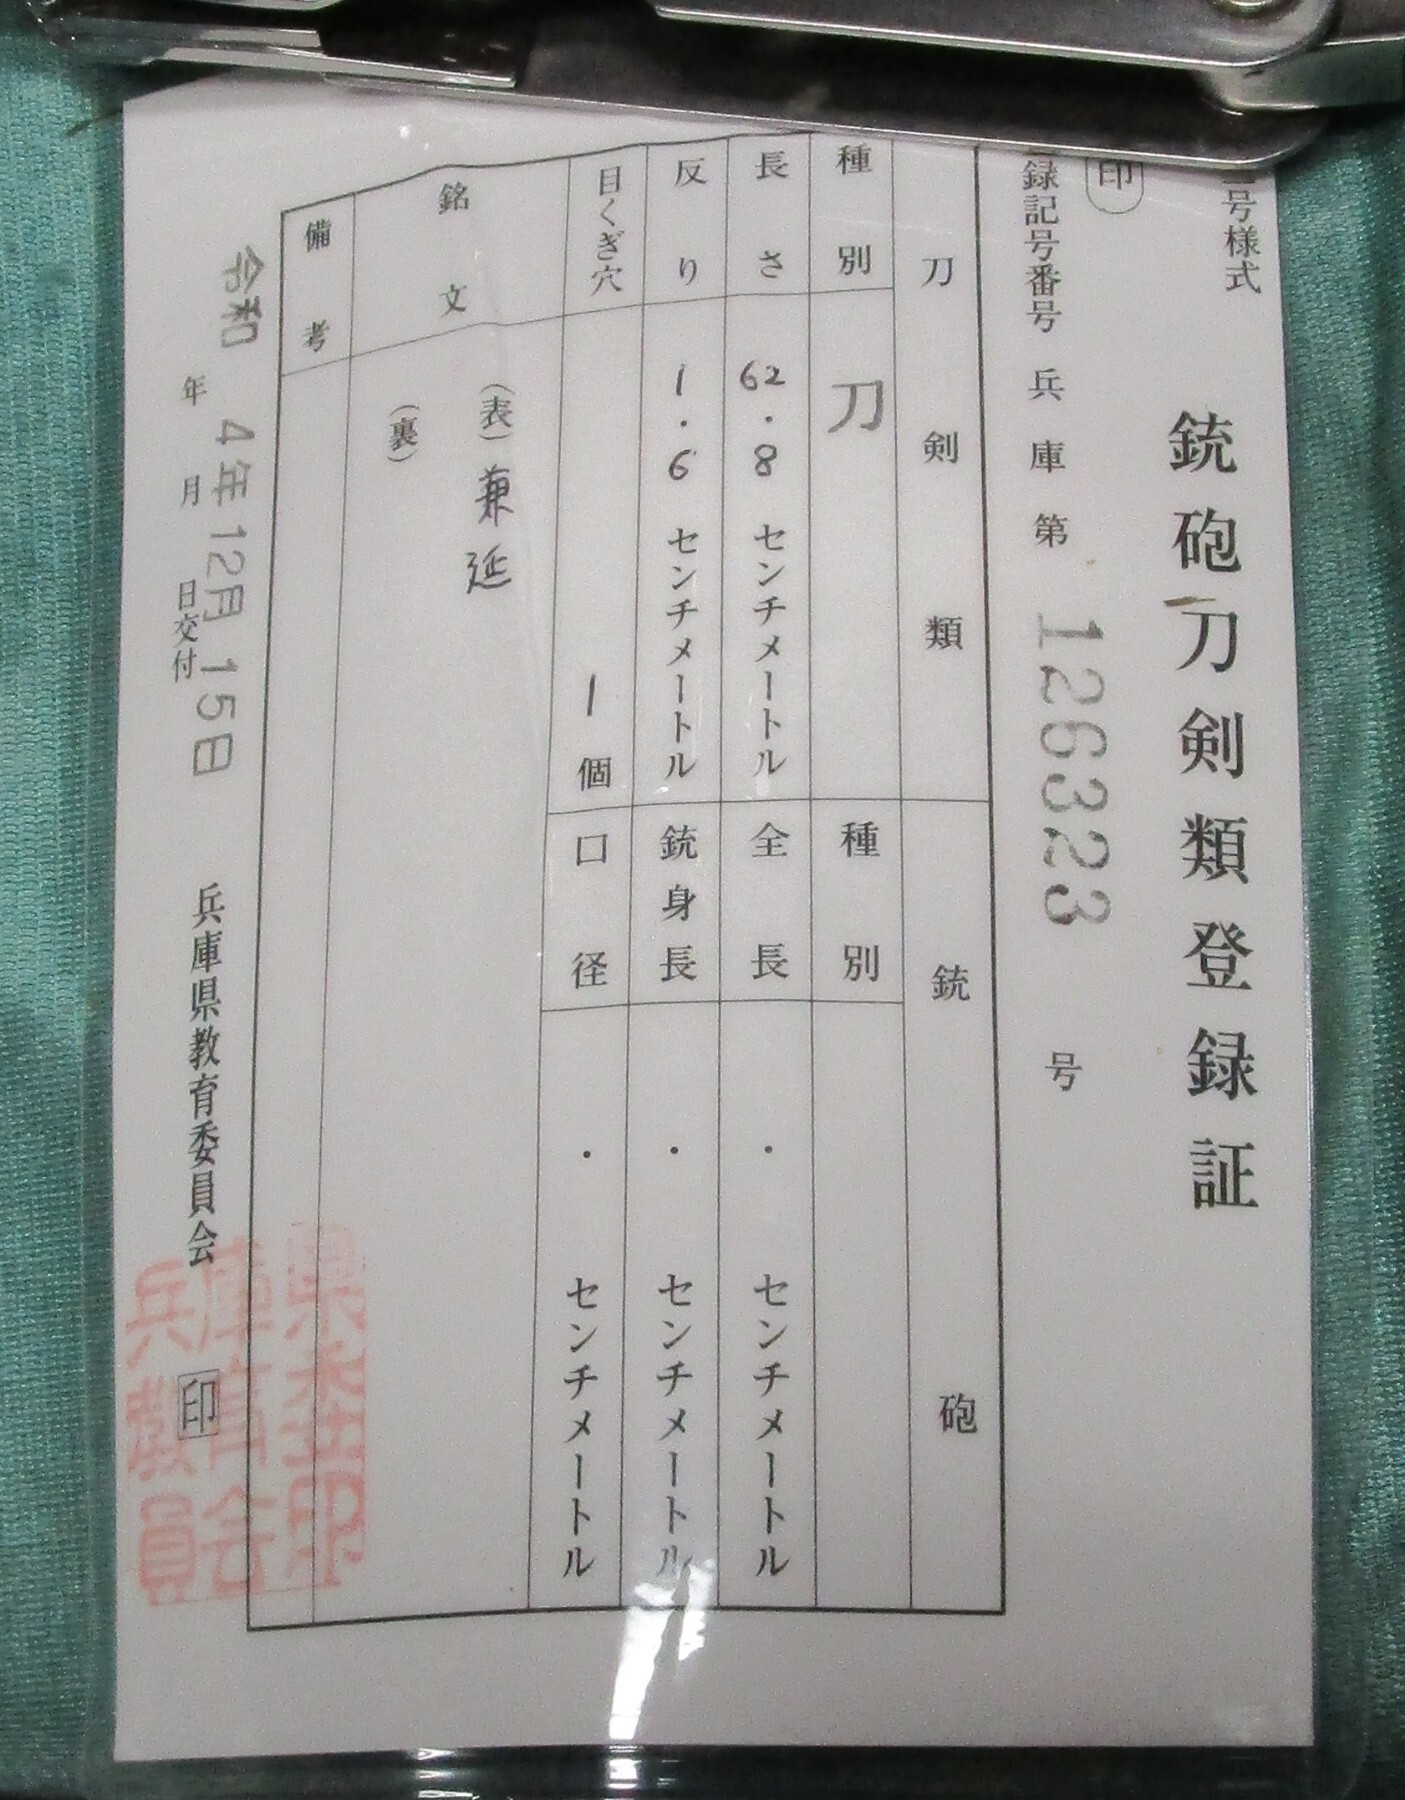 号様式
銃砲刀剣類登録証
印
録記号番号 兵庫第 126323 号
刀剣類
銃砲
種別 刀
種別
長さ 62.8 センチメートル
全長 ・ センチメートル
反り 1.6 センチメートル
銃身長 ・ センチメートル
目くぎ穴 1個
口径 ・ センチメートル
銘文
(表) 兼延
(裏)
備考
令和 4年12月15日
年 月 日交付
兵庫県教育委員会 印
兵庫県
教育委
員会印